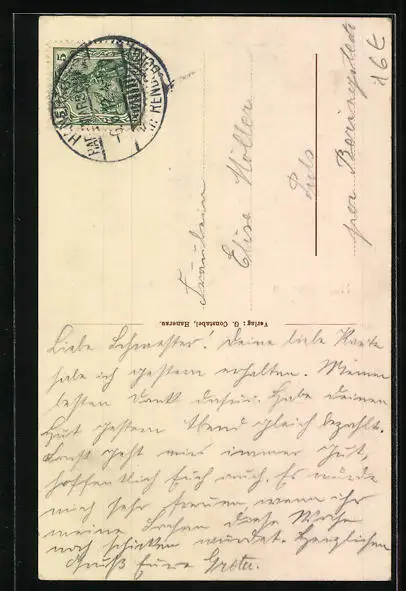 5
Fräulein
Elise Möller
Puls
per Beringstedt
16 €
Verlag: G. Constabel, Hanerau.
Liebe Schwester. Deine liebe Karte
habe ich gestern erhalten. Meinen
besten Dank dafür. Habe deinen
Hut gestern Abend gleich bezahlt.
Sonst geht mirs immer gut,
hoffentlich Euch auch. Es würde
mich sehr freuen wenn ihr
meine Sachen diese Woche
noch schicken würdet. Herzlichen
Gruß Eure Greta.